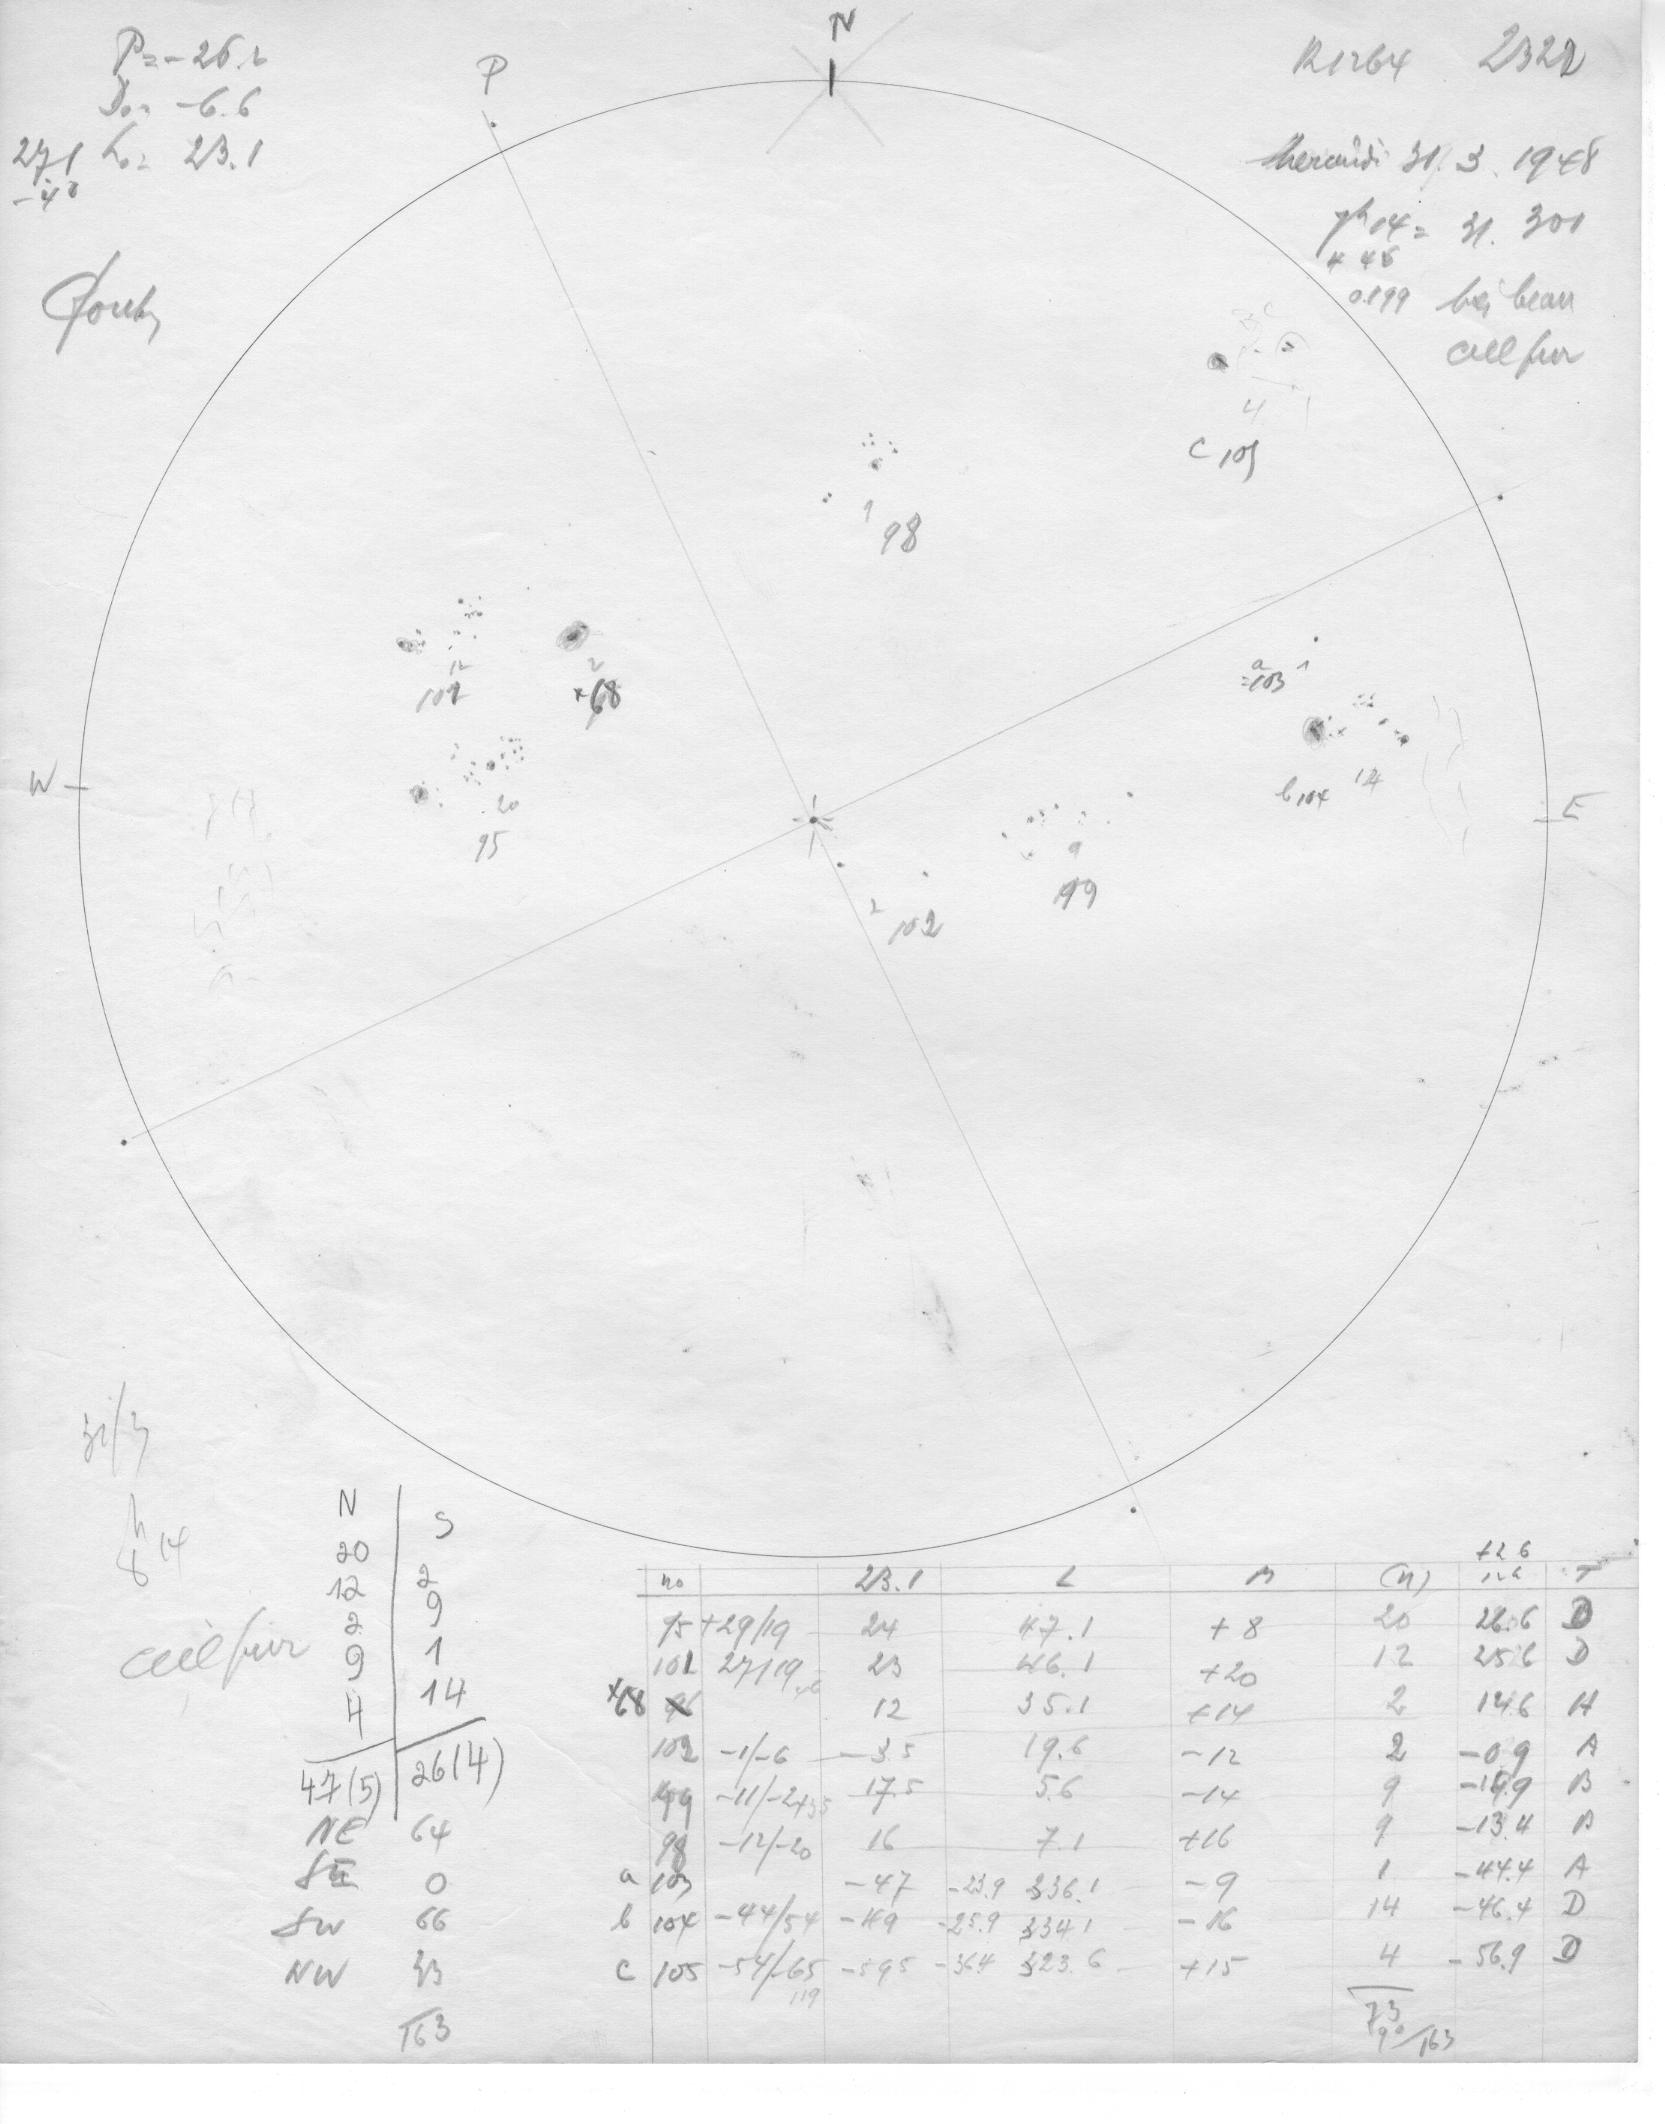 P=-26.2
Do= -6.6
Lo= 23.1
271
N
P
R1264 2322
31. 3. 1948
7h14= 31. 301
+ 45
0.199
beau
ciel pur
C 105
4
1 98
12
101
2
×68
a 1
=103
14
b 104
W
E
20
95
9
99
2 102
31/3
8h14
ciel pur
N S
20 2
12 9
2 1
9 14
4
47(5) 26(4)
NE 64
SE 0
SW 66
NW 33
163
+2.6
no 23.1 L M (n) T
95 +29/19 24 47.1 +8 20 26.6 D
101 27/19 23 46.1 +20 12 25.6 D
×68 12 35.1 +14 2 14.6 H
102 -1/-6 -3.5 19.6 -12 2 -0.9 A
99 -11/-24 17.5 5.6 -14 9 -14.9 B
98 -12/-20 16 7.1 +16 9 -13.4 B
a 103 -47 -23.9 336.1 -9 1 -44.4 A
b 104 -44/54 -49 -25.9 334.1 -16 14 -46.4 D
c 105 -54/-65 -59.5 -36.4 323.6 +15 4 -56.9 D
119
73
90/163